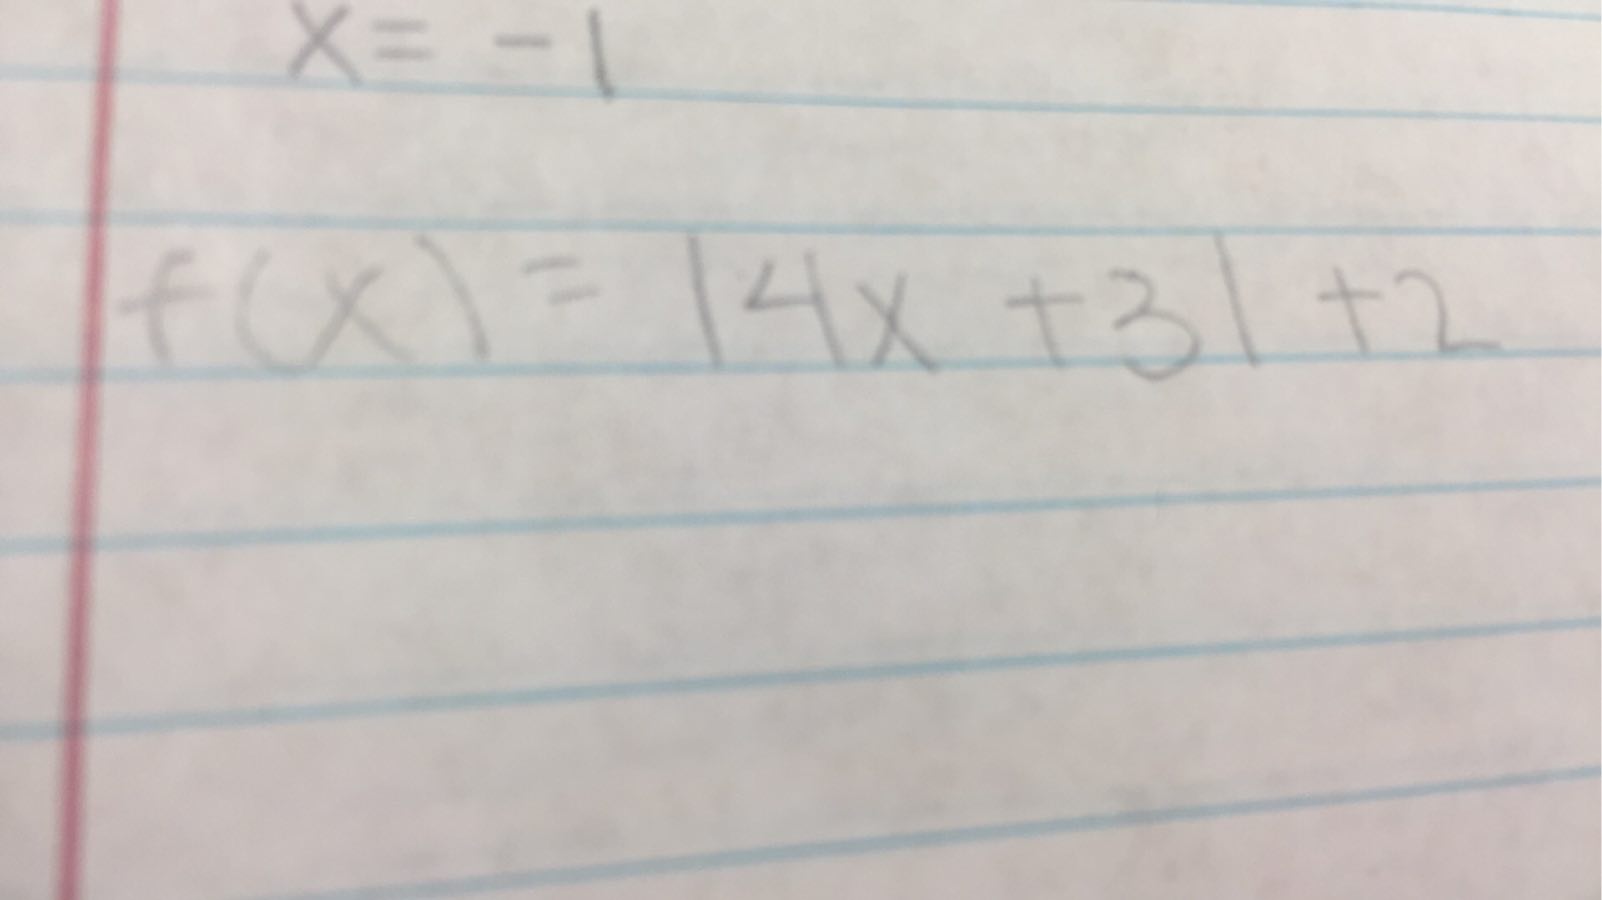 x = -1
f(x) = |4x + 3| + 2